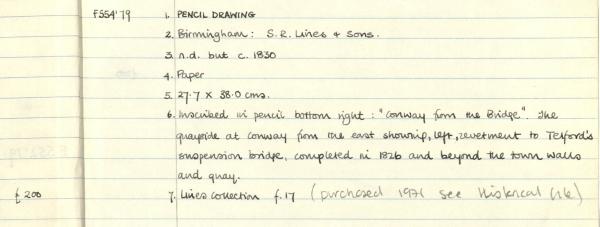 F554'79 1. PENCIL DRAWING
2. Birmingham: S.R. Lines & Sons.
3. n.d. but c. 1830
4. Paper
5. 27.7 x 38.0 cms.
6. Inscribed in pencil bottom right: "Conway from the Bridge". The
quayside at Conway from the east showing, left, revetment to Telford's
suspension bridge, completed in 1826 and beyond the town walls
and quay.
£200 7. Lines collection f.17 (purchased 1971 see Historical file)